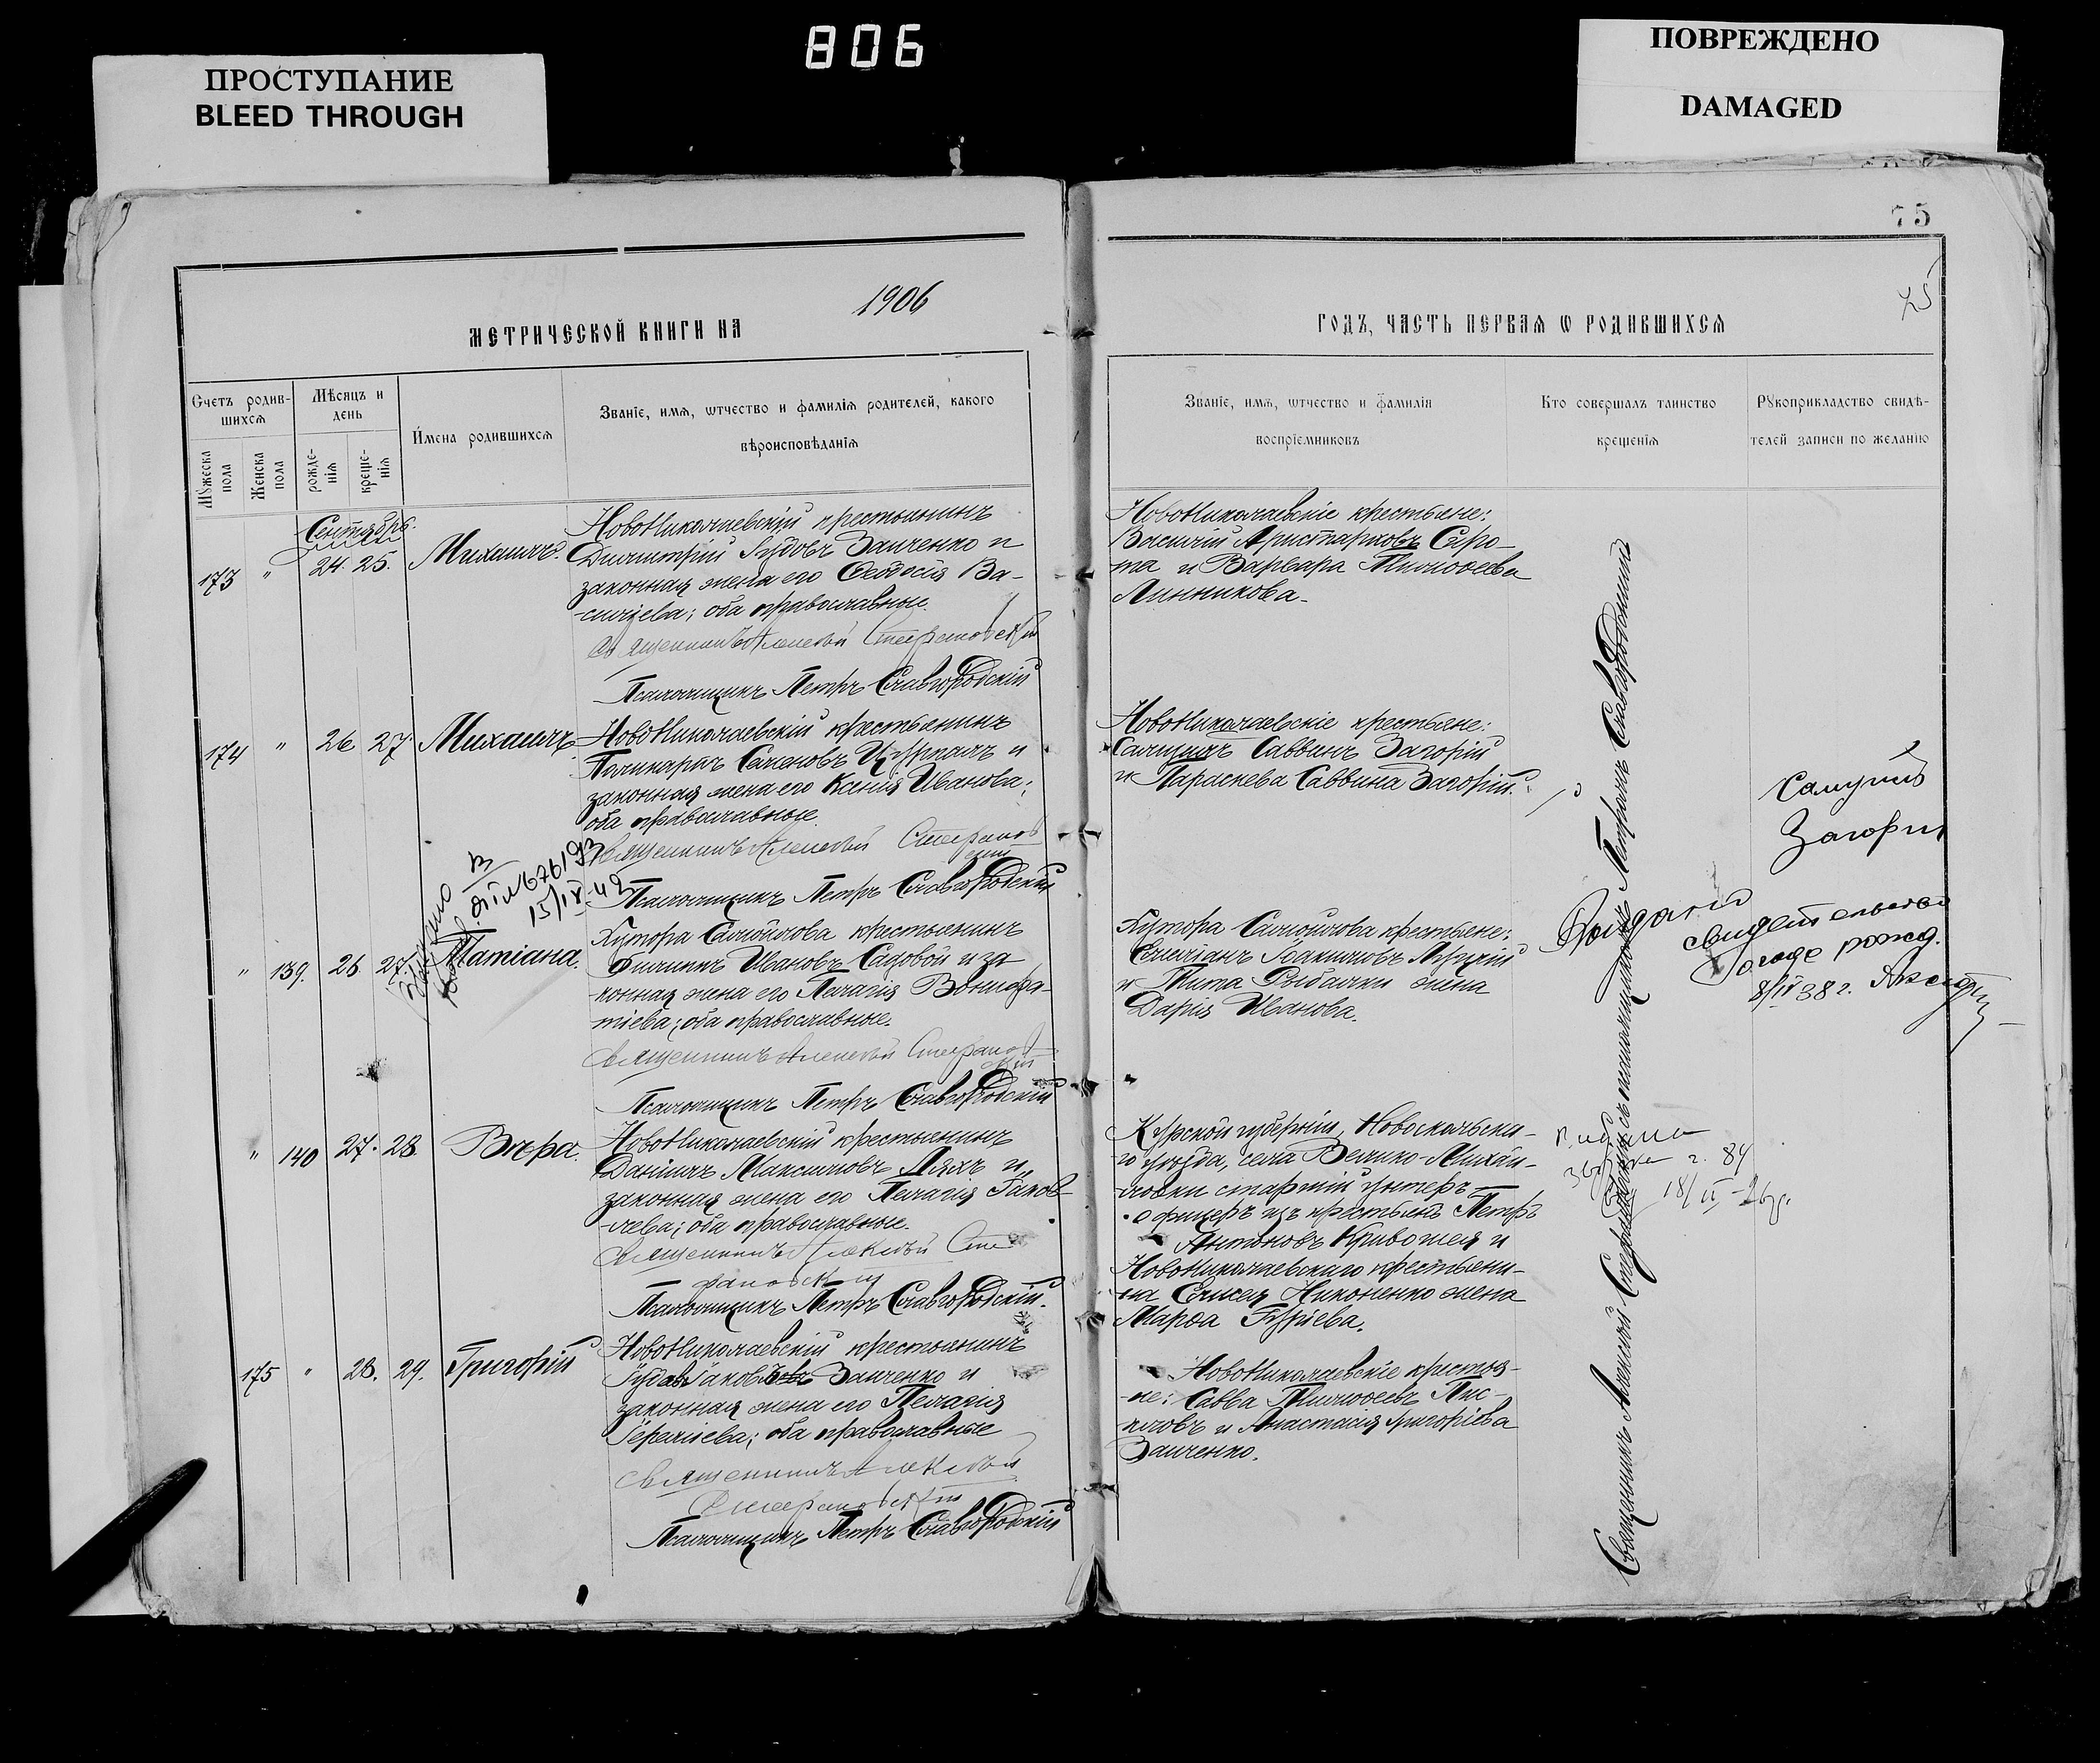 806
ПРОСТУПАНИЕ
BLEED THROUGH
ПОВРЕЖДЕНО
DAMAGED
75
75
1906
МЕТРИЧЕСКОЙ КНИГИ НА
ГОДЪ, ЧАСТЬ ПЕРВАЯ Ѡ РОДИВШИХСЯ
Счетъ родив-
шихся
Мѣсяцъ и
день
Имена родившихся
Званіе, имя, ѡтчество и фамилія родителей, какого
вѣроисповѣданія
Мꙋжеска
пола
Женска
пола
рожде-
нія
креще-
нія
Званіе, имя, ѡтчество и фамилія
воспріемниковъ
Кто совершалъ таинство
крещенія
Рꙋкоприкладство свидѣ-
телей записи по желанію
Сентябрь.
173 " 24. 25. Михаилъ.
Новониколаевскій крестьянинъ
Димитрій Іудовъ Заиченко и
законная жена его Ѳеодосія Ва-
сильева; оба православные.
Священникъ Алексѣй Стефановскій
Псаломщикъ Петръ Славгородскій
Новониколаевскіе крестьяне:
Василій Аристарховъ Сиро-
та и Варвара Тимоѳеева
Линникова.
174 " 26 27. Михаилъ
Новониколаевскій крестьянинъ
Поликарпъ Семеновъ и
законная жена его Ксенія Иванова;
оба православные.
Священникъ Алексѣй Стефанов
скій
Псаломщикъ Петръ Славгородскій
Новониколаевскіе крестьяне:
Самуилъ Саввинъ Загорій
и Параскева Саввина Загорій.
Самуилъ
Загорій
15/IX-49
" 139. 26 27. Татіана.
Хутора Самойлова крестьянинъ
Филиппъ Ивановъ Садовой и за
конная жена его Пелагія Вонифа-
тіева; оба православные.
Священникъ Алексѣй Стефанов
скій
Псаломщикъ Петръ Славгородскій
Хутора Самойлова крестьяне:
Емеліанъ Іоакимовъ
и Тита Рыбалки жена
Дарія Иванова.
Выдано
свидетельство
о годе рожд.
8/IV 38 г.
" 140 27. 28. Вѣра.
Новониколаевскій крестьянинъ
Даніилъ Максимовъ Ляхъ и
законная жена его Пелагія Іаков-
лева; оба православные.
Священникъ Алексѣй Сте
фановскій
Псаломщикъ Петръ Славгородскій.
Курской губерніи, Новоскольска-
го уѣзда, села Велико-Михай-
ловки старшій унтеръ-
офицеръ изъ крестьянъ Петръ
Антоновъ Кривошея и
Новониколаевскаго крестьяни-
на Елисея Никоненко жена
Марѳа Гуріева.
175 " 28. 29. Григорій
Новониколаевскій крестьянинъ
Іуда Іаковлевъ Заиченко и
законная жена его Пелагія
оба православные
Священникъ Алексѣй
Стефановскій
Псаломщикъ Петръ Славгородскій
Новониколаевскіе крестья-
не: Савва Тимоѳеевъ Пис-
куловъ и Анастасія Григоріева
Заиченко.
Священникъ Алексѣй Стефановскій съ псаломщикомъ Петромъ Славгородскимъ